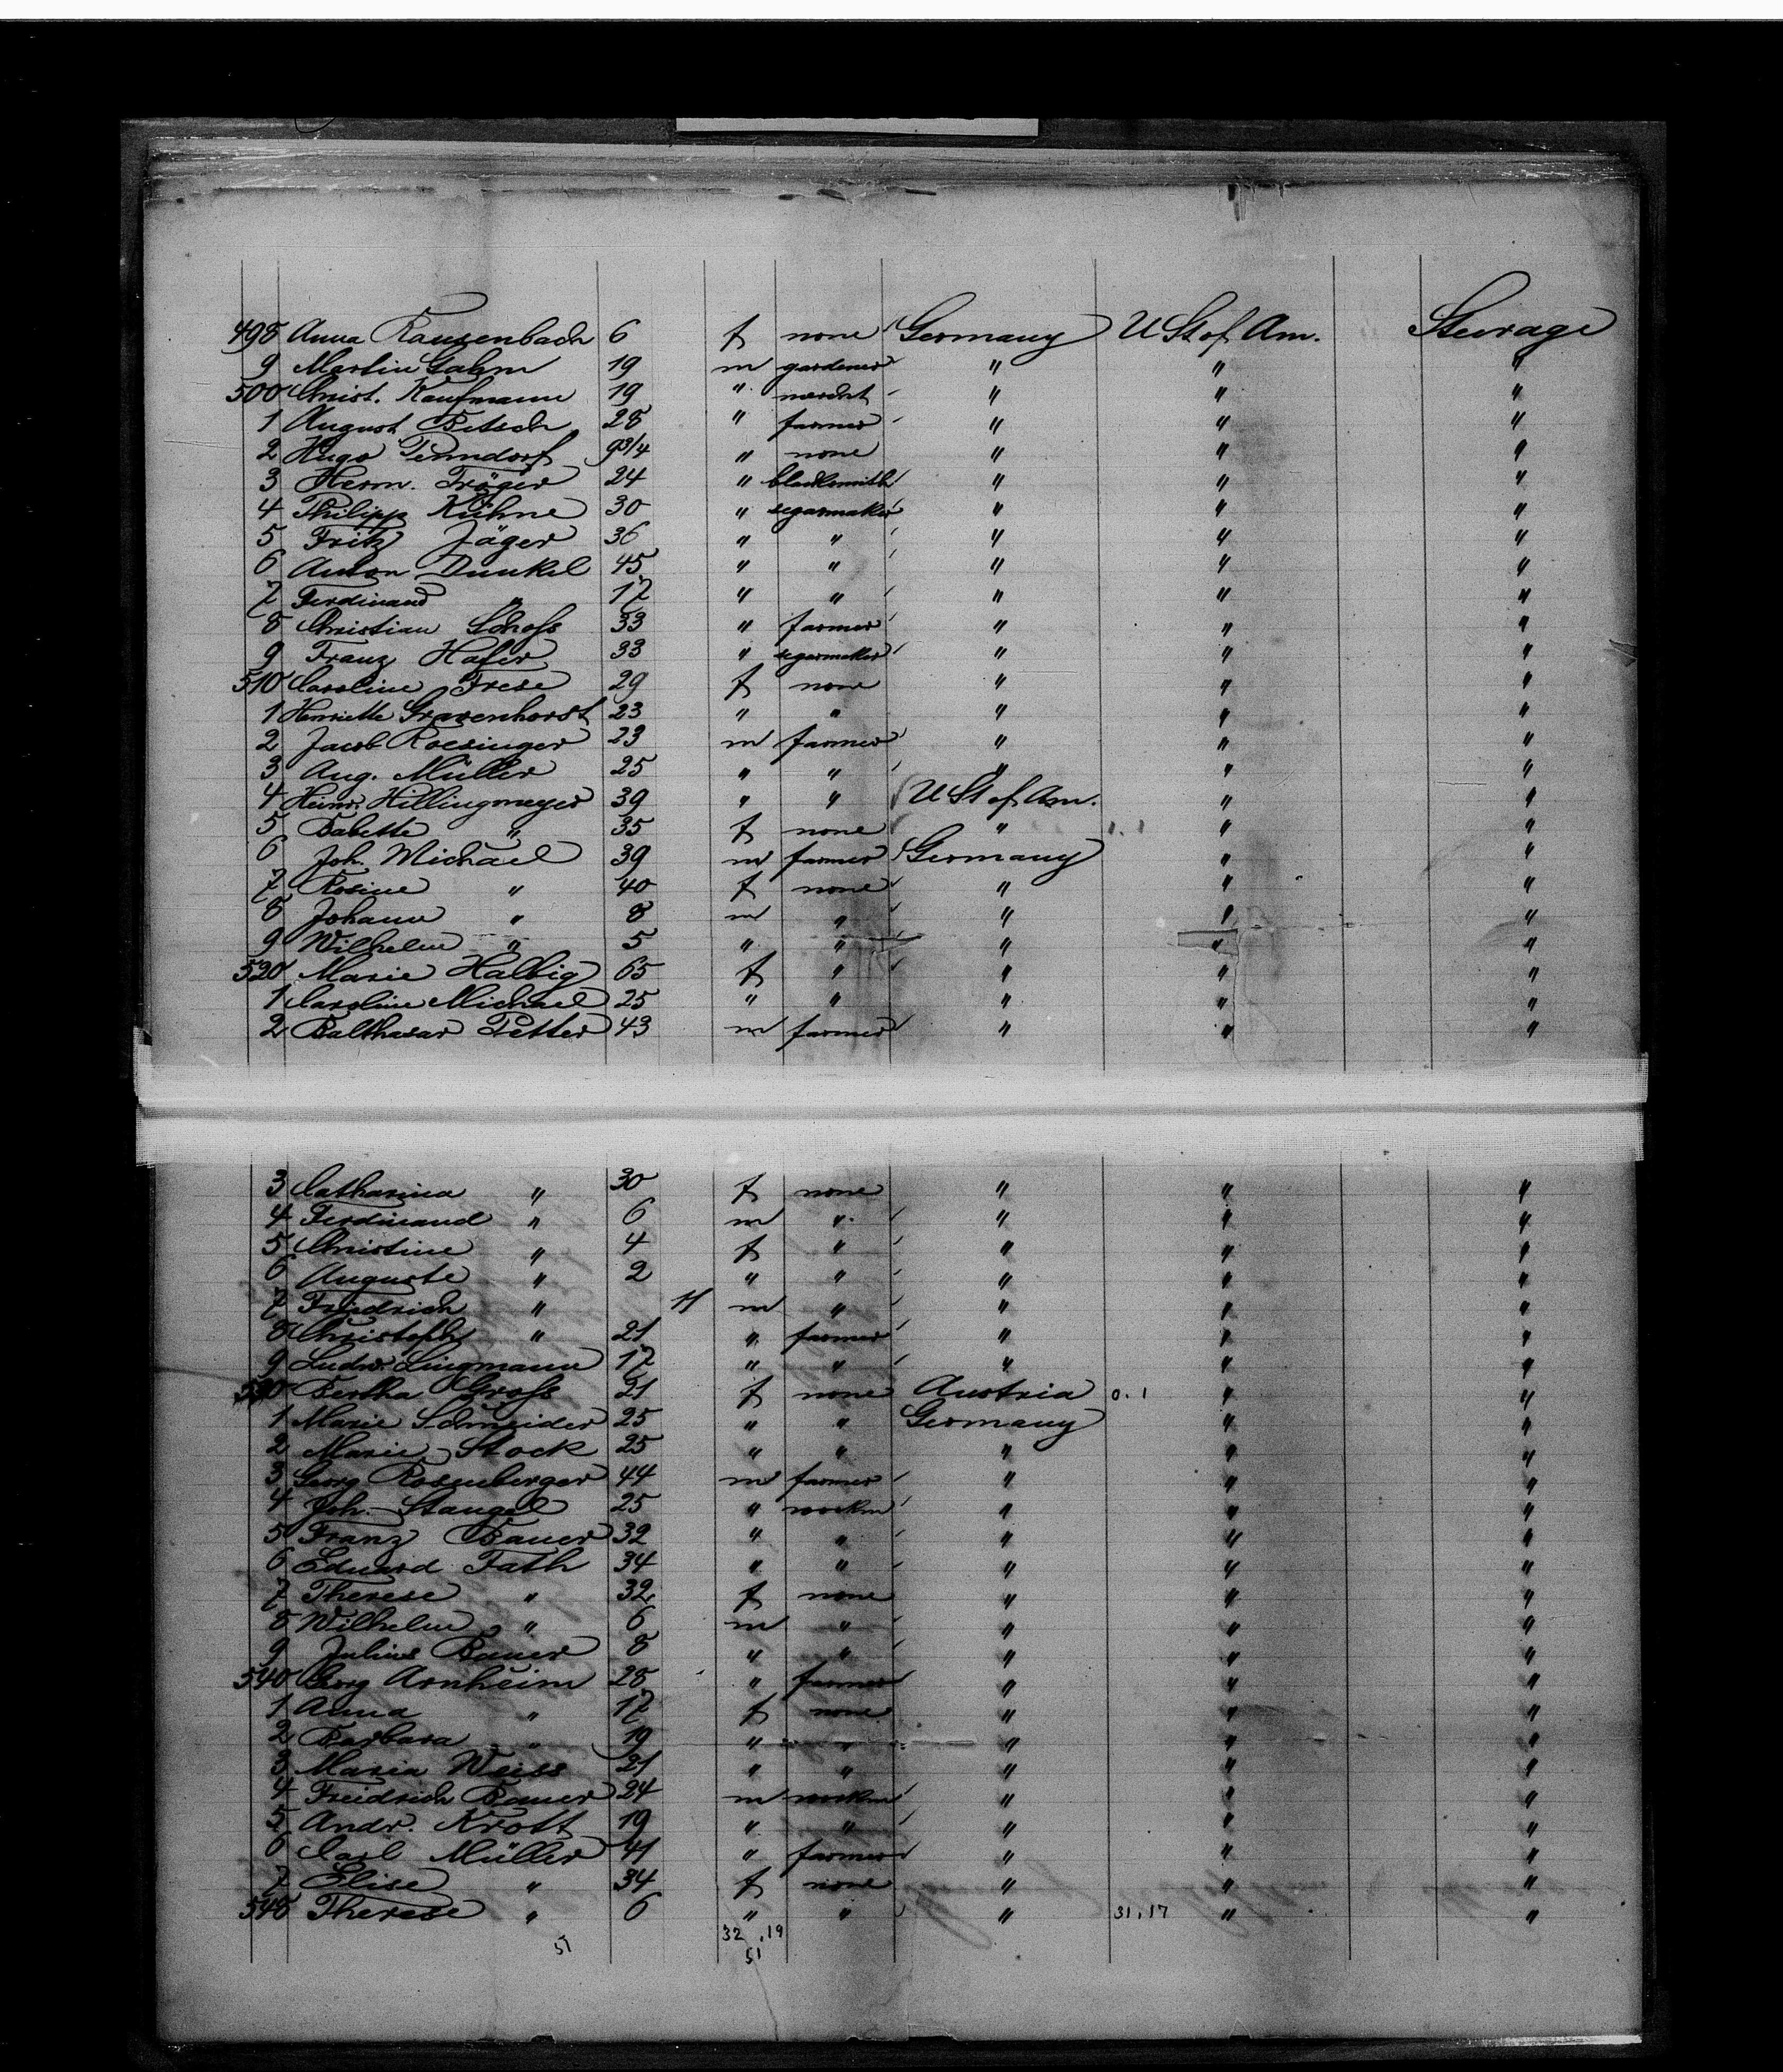 498 Anna Rausenbach 6 f none Germany U St of Am. Steerage
9 Martin Gahm 19 m gardener " " "
500 Christ. Kaufmann 19 " mercht " " "
1 August Betsch 28 " farmer " " "
2 Hugo Penndorf 9 3/4 " none " " "
3 Herm. Tröger 24 " blacksmith " " "
4 Philipp Kühne 30 " segarmaker " " "
5 Fritz Jäger 36 " " " " "
6 Anton Dunkel 45 " " " " "
7 Ferdinand " 17 " " " " "
8 Christian Schoss 33 " farmer " " "
9 Franz Hafer 33 " segarmaker " " "
510 Caroline Frese 29 f none " " "
1 Henriette Gravenhorst 23 " " " " "
2 Jacob Roesinger 23 m farmer " " "
3 Aug. Müller 25 " " " " "
4 Heinr. Hillingmeyer 39 " " U St of Am. " "
5 Babette " 35 f none " 1 . 1 " "
6 Joh. Michael 39 m farmer Germany " "
7 Rosine " 40 f none " " "
8 Johann " 8 m " " " "
9 Wilhelm " 5 " " " " "
520 Marie Halbig 65 f " " " "
1 Caroline Michael 25 " " " " "
2 Balthasar Petter 43 m farmer " " "
3 Catharina " 30 f none " " "
4 Ferdinand " 6 m " " " "
5 Christine " 4 f " " " "
6 Auguste " 2 " " " " "
7 Friedrich " 11 m " " " "
8 Christoph " 21 " farmer " " "
9 Ludw. Lingmann 17 " " " " "
530 Bertha Gross 21 f none Austria 0 . 1 " "
1 Marie Schneider 25 " " Germany " "
2 Marie Stock 25 " " " " "
3 Georg Rosenberger 44 m farmer " " "
4 Joh. Stangel 25 " workm " " "
5 Franz Bauer 32 " " " " "
6 Eduard Fath 34 " " " " "
7 Therese " 32 f none " " "
8 Wilhelm " 6 m " " " "
9 Julius Bauer 8 " " " " "
540 Georg Arnheim 28 " farmer " " "
1 Anna " 17 f none " " "
2 Barbara " 19 " " " " "
3 Maria Weiss 21 " " " " "
4 Freidrich Bauer 24 m workm " " "
5 Andr. Krott 19 " " " " "
6 Carl Müller 41 " farmer " " "
7 Elise " 34 f none " " "
548 Therese " 6 " " " 31 . 17 " "
32 . 19
51 51